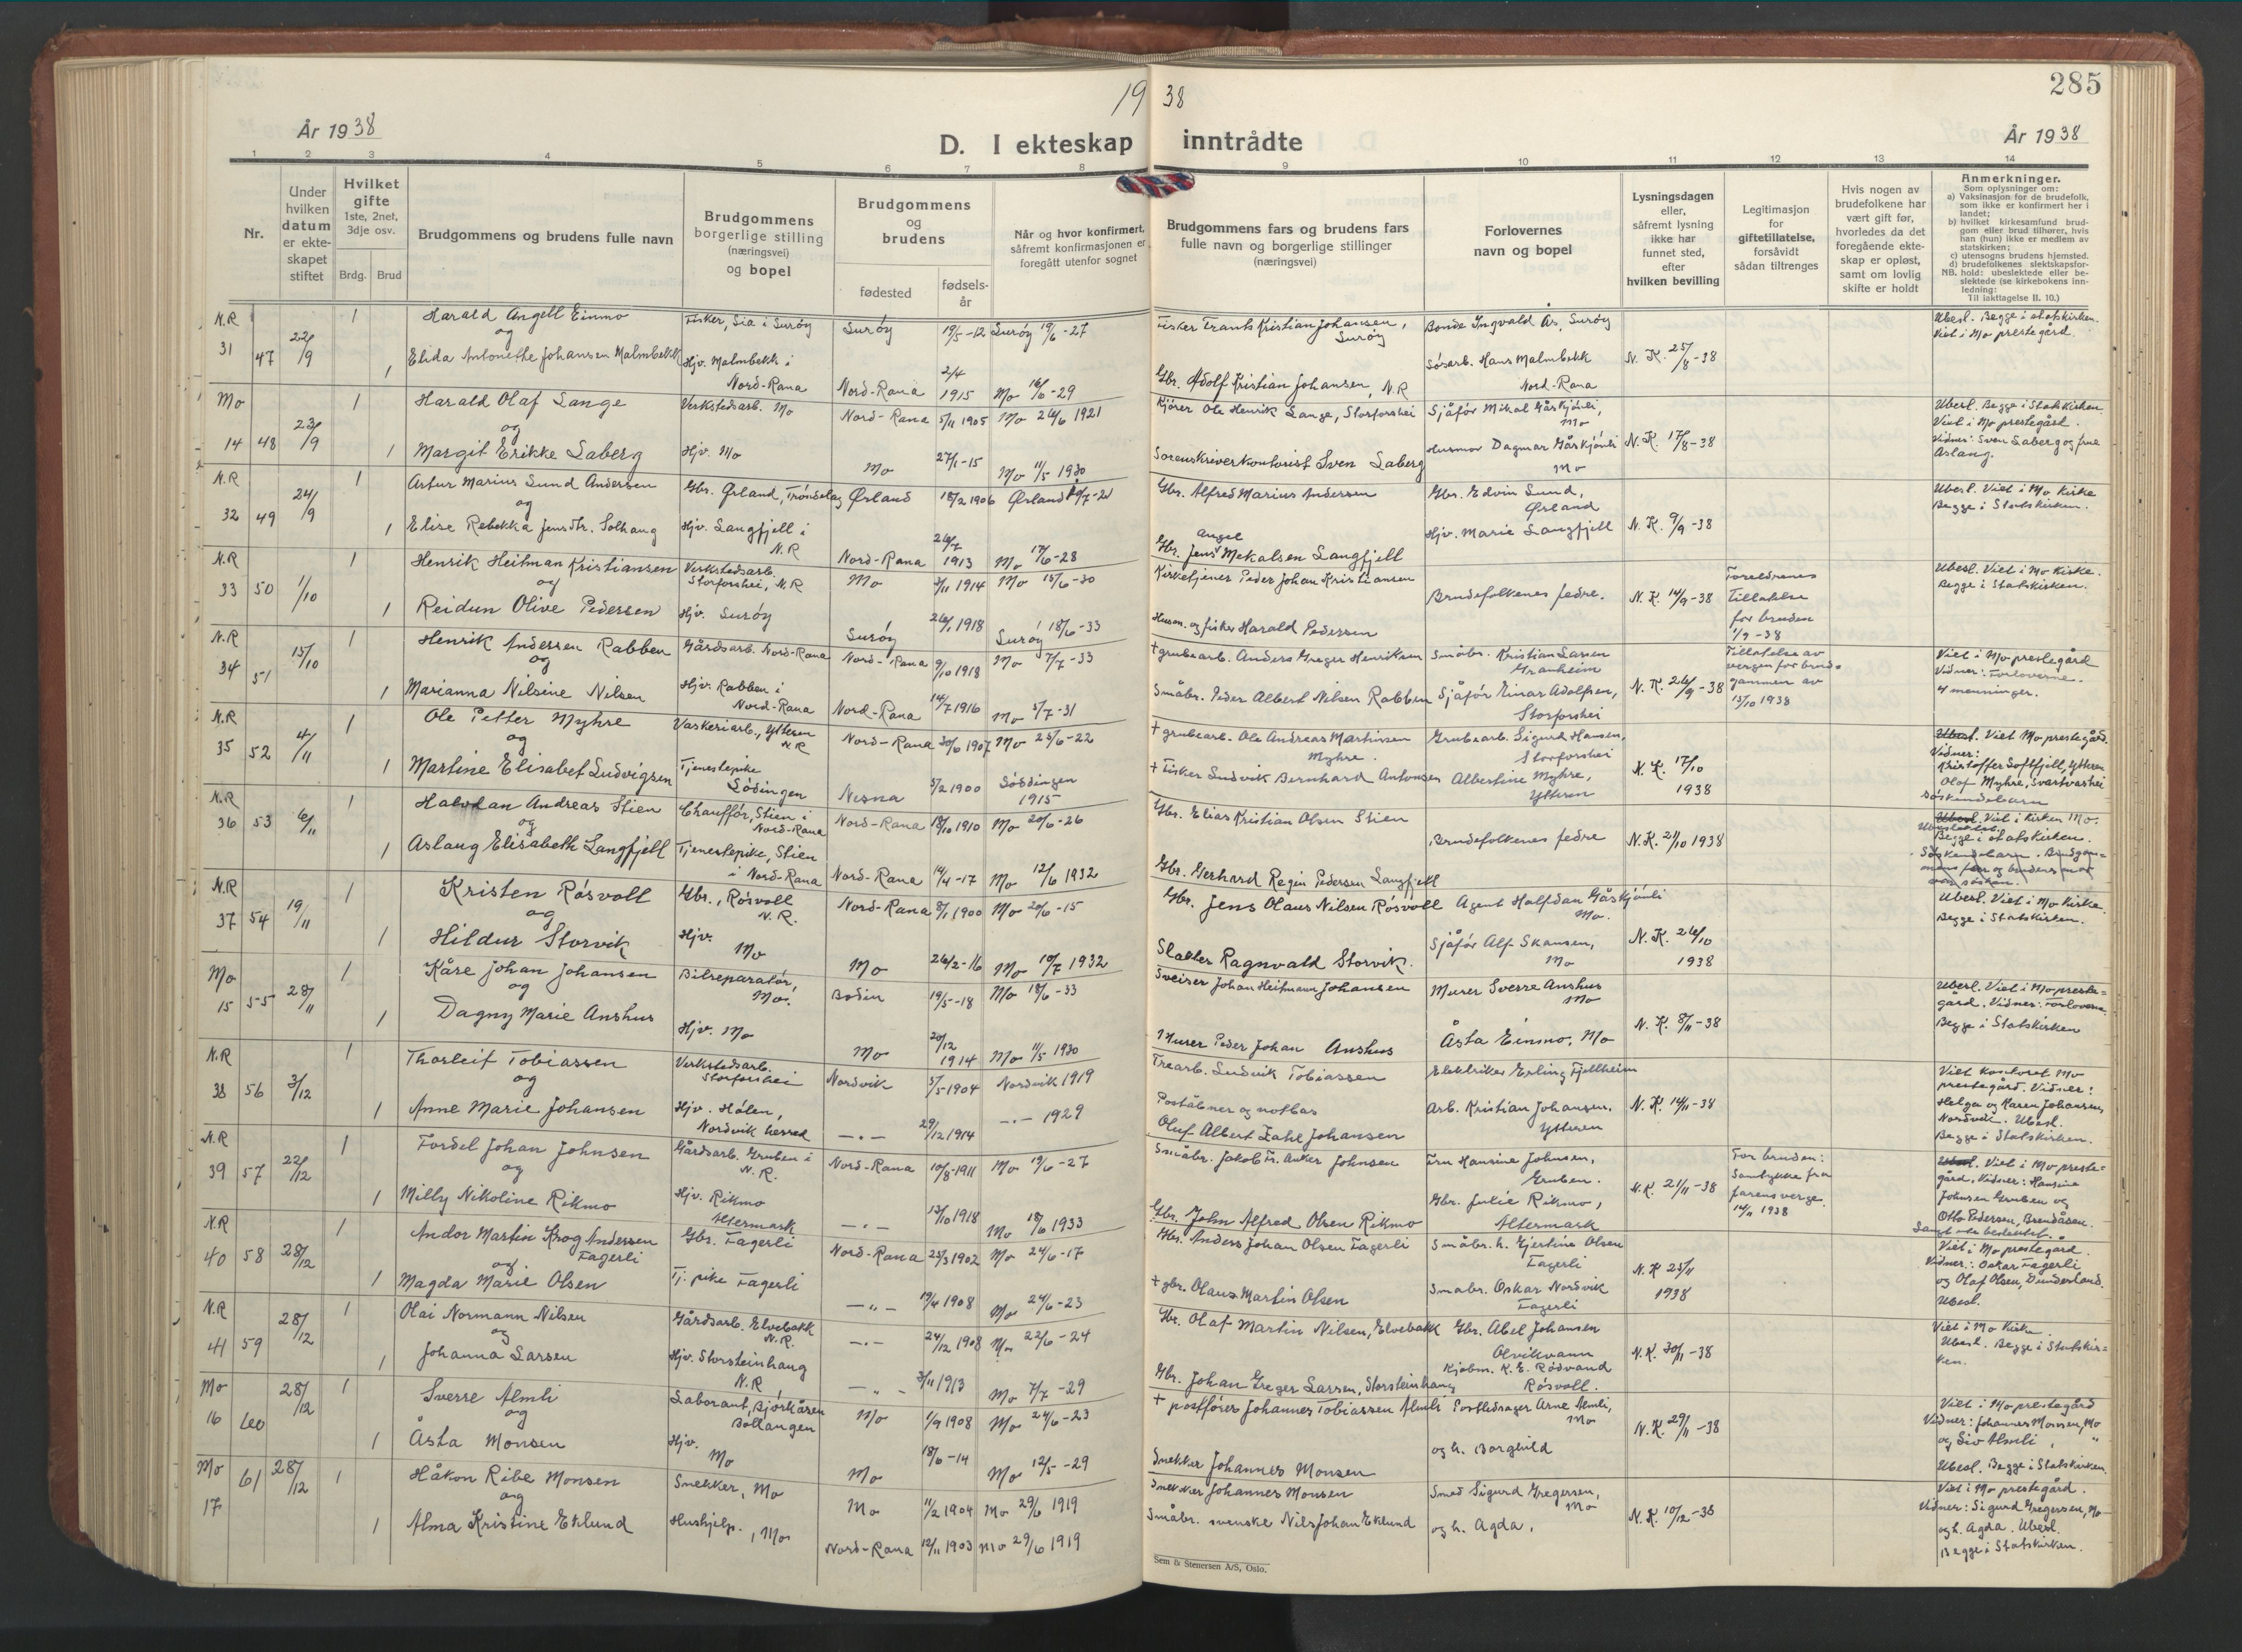 19 38
285
År 1938
D. I ekteskap inntrådte
År 1938
1 2 3 4 5 6 7 8 9 10 11 12 13 14
Nr.
Under hvilken datum er ekteskapet stiftet
Hvilket gifte
1ste, 2net, 3dje osv.
Brdg. Brud
Brudgommens og brudens fulle navn
Brudgommens borgerlige stilling (næringsvei) og bopel
Brudgommens og brudens
fødested
fødselsår
Når og hvor konfirmert, såfremt konfirmasjonen er foregått utenfor sognet
Brudgommens fars og brudens fars fulle navn og borgerlige stillinger (næringsvei)
Forlovernes navn og bopel
Lysningsdagen eller, såfremt lysning ikke har funnet sted, efter hvilken bevilling
Legitimasjon for giftetillatelse, forsåvidt sådan tiltrenges
Hvis nogen av brudefolkene har vært gift før, hvorledes da det foregående ekteskap er opløst, samt om lovlig skifte er holdt
Anmerkninger.
Som oplysninger om:
a) Vaksinasjon for de brudefolk, som ikke er konfirmert her i landet;
b) hvilket kirkesamfund brudgom eller brud tilhører, hvis han (hun) ikke er medlem av statskirken;
c) utensogns brudens hjemsted.
d) brudefolkenes slektskapsforhold: ubeslektede eller beslektede (se kirkebokens innledning:
NB.
Til iakttagelse II. 10.)
N.R 31 47 22/9 1 Harald Angell Einmo Fisker, Sia i Surøy Surøy 19/5-12 Surøy 19/6-27 Fisker Frants Kristian Johansen, Surøy Bonde Ingvald Ås, Surøy Ubesl. Begge i statskirken. Viet i Mo prestegård.
og
1 Elida Antonethe Johansen Malmbekk Hjv. Malmbekk i Nord-Rana Nord-Rana 2/4 1915 Mo 16/6-29 Gbr. Adolf Kristian Johansen, N.R Søsarb. Hans Malmbekk Nord-Rana N.K. 25/8-38
Mo 14 48 23/9 1 Harald Olaf Lange Verkstedsarb. Mo Nord-Rana 5/11 1905 Mo 26/6 1921 Kjører Ole Henrik Lange, Storforshei Sjåfør Mikal Gåskjønli, Mo Ubesl. Begge i Statskirken. Viet i Mo prestegård. Vidner: Sven Saberg og frue Aslang.
og
1 Margit Erikke Saberg Hjv. Mo Mo 27/1-15 Mo 11/5 1930 Sorenskriverkontorist Sven Saberg Husmor Dagmar Gåskjønli Mo N.K. 17/8-38
N.R 32 49 24/9 1 Artur Marius Sund Andersen Gbr. Ørland, Trøndelag Ørland 18/2 1906 Ørland 10/7-21 Gbr. Alfred Marius Andersen Gbr. Edvin Sund, Ørland Ubesl. Viet i Mo Kirke Begge i Statskirken.
og
1 Elise Rebekka Jensdtr. Solhaug Hjv. Langfjell i N.R Nord-Rana 26/7 1913 Mo 17/6-28 Gbr. Jens Angel Mekalsen Langfjell Hjv. Marie Langfjell N.K. 9/9-38
N.R 33 50 1/10 1 Henrik Heitman Kristiansen Verkstedsarb. Storforshei, N.R Mo 3/11 1914 Mo 15/6-30 Kirketjener Peder Johan Kristiansen Brudefolkenes fedre. N.K. 14/9-38 Foreldrenes Tillatelse for bruden 1/9-38 Ubesl. Viet i Mo Kirke. Begge i Statskirken.
og
1 Reidun Olive Pedersen Hjv. Surøy Surøy 26/1 1918 Surøy 18/6-33 Husm. og fisker Harald Pedersen
N.R 34 51 15/10 1 Henrik Andersen Rabben Gårdsarb. Nord-Rana Nord-Rana 9/10 1918 Mo 7/7-33 + grubearb. Anders Greger Henriksen Småbr. Kristian Larsen Granheim Tillatelse av vergen for brudgommen av 15/10 1938 Viet i Mo prestegård Vidner: Forloverne. 4 menninger.
og
1 Marianna Nilsine Nilsen Hjv. Rabben i Nord-Rana Nord-Rana 14/7 1916 Mo 5/7-31 Småbr. Peder Albert Nilsen Rabben Sjåfør Einar Adolfsen, Storforshei N.K. 26/9-38
N.R 35 52 4/11 1 Ole Petter Myhre Vaskeriarb., Ytteren N.R Nord-Rana 30/6 1907 Mo 25/6-22 + grubearb. Ole Andreas Martinsen Myhre. Grubearb. Sigurd Hansen, Storforshei Ubesl. Viet Mo prestegård. Vidner: Kristoffer Loftfjell, Ytteren Olaf Myhre, Svartvasshei Søskendebarn
og
1 Martine Elisabet Ludvigsen Tjenestepike Lødingen Nesna 5/2 1900 Lødingen 1915 + Fisker Ludvik Bernhard Antonsen Albertine Myhre, Ytteren N.K. 17/10 1938
N.R 36 53 6/11 1 Halvdan Andreas Stien Chauffør, Stien i Nord-Rana Nord-Rana 18/10 1910 Mo 20/6-26 Gbr. Elias Kristian Olsen Stien Brudefolkenes fedre N.K. 21/10 1938 Ubesl. Viet i Kirken Mo. Ubeslektet. Begge i Statskirken. Søskendebarn. Brudgommens far og brudens mor var søsken.
og
1 Aslaug Elisabeth Langfjell Tjenestepike, Stien i Nord-Rana Nord-Rana 14/4-17 Mo 12/6 1932 Gbr. Gerhard Regin Pedersen Langfjell
N.R 37 54 19/11 1 Kristen Røsvoll Gbr., Røsvoll N.R. Nord-Rana 8/1 1900 Mo 20/6-15 Gbr. Jens Olaus Nilsen Røsvoll Agent Halfdan Gåskjønli Mo. Ubesl. Viet i Mo Kirke. Begge i Statskirken.
og
1 Hildur Storvik Hjv. Mo Mo 26/2-16 Mo 10/7 1932 Slakter Ragnvald Storvik. Sjåfør Alf Skansen, Mo N.K. 26/10 1938
Mo 15 55 28/11 1 Kåre Johan Johansen Bilreparatør, Mo. Bodin 19/5-18 Mo 18/6-33 Sveiser Johan Heitmann Johansen Murer Sverre Anshus Mo Ubesl. Viet i Mo prestegård. Vidner: Forloverne. Begge i Statskirken
og
1 Dagny Marie Anshus Hjv. Mo Mo 20/12 1914 Mo 11/5 1930 Murer Peder Johan Anshus Åsta Einmo, Mo N.K. 8/11-38
N.R 38 56 3/12 1 Thorleif Tobiassen Verkstedsarb. Storforshei Nordvik 5/5 1904 Nordvik 1919 Trearb. Ludvik Tobiassen Elektriker Erling Fjellheim Viet kontoret Mo prestegård. Vidner: Helga og Karen Johansen, Nordvik. Ubesl. Begge i Statskirken.
og
1 Anne Marie Johansen Hjv. Hølen, Nordvik herred —.— 29/12 1914 —.— 1929 Poståbner og notbas Oluf Albert Zahl Johansen Arb. Kristian Johansen, Ytteren N.K. 14/11-38
N.R 39 57 22/12 1 Fordel Johan Johnsen Gårdsarb. Gruben i N.R. Nord-Rana 10/8-1911 Mo 19/6-27 Småbr. Jakob Fr. Anker Johnsen Fru Hansine Johnsen, Gruben. For bruden: Samtykke fra farens verge. 14/11 1938 Ubesl. Viet i Mo prestegård, Vidner: Hansine Johnsen Gruben og Otto Pedersen, Brendåsen.
og
1 Milly Nikoline Rikmo Hjv. Rikmo Altermark —.— 13/10 1918 Mo 18/6 1933 Gbr. John Alfred Olsen Rikmo Gbr. Julie Rikmo, Altermark N.K. 21/11-38
N.R 40 58 28/12 1 Andor Martin Krog Andersen Fagerli Gbr. Fagerli Nord-Rana 25/3 1902 Mo 24/6-17 Gbr. Anders Johan Olsen Fagerli Småbr. h. Gjertine Olsen Fagerli Viet i Mo prestegård. Vidner: Oskar Fagerli og Olaf Olsen, Dunderland. Ubesl.
og
1 Magda Marie Olsen Tj. pike Fagerli —„— 19/4 1908 Mo 24/6-23 + gbr. Olaus Martin Olsen Småbr. Oskar Nordvik Fagerli N.K 25/11 1938
N.R 41 59 28/12 1 Olai Normann Nilsen Gårdsarb. Elvebakk N.R. —.— 24/12 1908 Mo 22/6-24 Gbr. Olaf Martin Nilsen, Elvebakk Gbr. Abel Johansen Olvikvann Viet i Mo Kirke. Ubesl. Begge i Statskirken.
og
1 Johanna Larsen Hjv. Storsteinhaug N.R —„— 3/11 1913 Mo 7/7-29 Gbr. Johan Greger Larsen, Storsteinhaug Kjøbm. K.E. Rødvand Røsvoll. N.K. 30/11-38
Mo 16 60 28/12 1 Sverre Almli Laborant, Bjørkåsen Ballangen Mo 1/9 1908 Mo 24/6-23 + postfører Johannes Tobiassen Almli Postbedrager Arne Almli, Mo Viet i Mo prestegård Vidner: Johannes Monsen, Mo og Siv Almli, „ Ubesl. Begge i Statskirken.
og
1 Åsta Monsen Hjv. Mo Mo 18/6-14 Mo 12/5-29 Snekker Johannes Monsen og h. Borghild N.K. 29/11-38
Mo 17 61 28/12 1 Håkon Ribe Monsen Snekker, Mo Mo 11/2 1904 Mo 29/6 1919 Snekker Johannes Monsen Smed Sigurd Gregersen, Mo Viet i Mo prestegård. Vidner: Sigurd Gregersen, Mo og h. Agda. Ubesl. Begge i Statskirken.
og
1 Alma Kristine Eklund Hushjelp., Mo Nord-Rana 12/11 1903 Mo 29/6 1919 Småbr. svenske Nils Johan Eklund og h. Agda. N.K. 10/12-38
Sem & Stenersen A/S, Oslo.